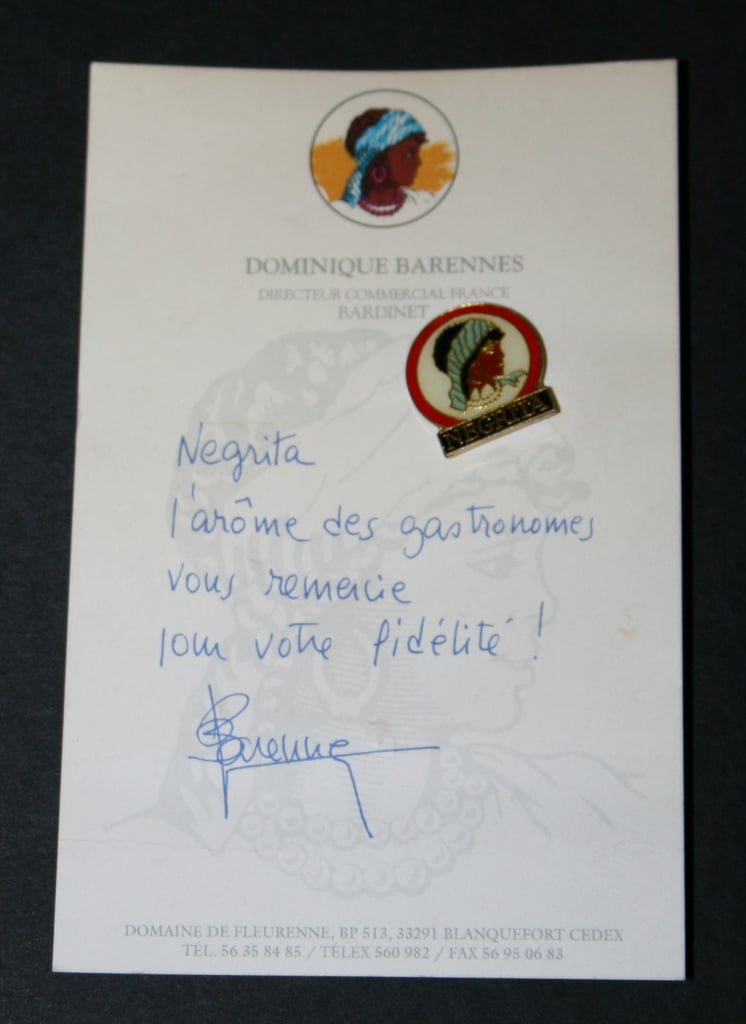 DOMINIQUE BARENNES
DIRECTEUR COMMERCIAL FRANCE
BARDINET
NEGRITA
Negrita
l'arôme des gastronomes
vous remercie
pour votre fidélité !
Barennes
DOMAINE DE FLEURENNE, BP 513, 33291 BLANQUEFORT CEDEX
TÉL. 56 35 84 85 / TÉLEX 560 982 / FAX 56 95 06 83